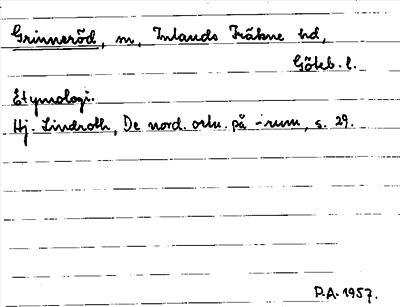 Grinneröd, m, Inlands Fräkne hd,
Göteb. l.
Etymologi.
Hj. Lindroth, De nord. ortn. på -rum, s. 29.
P.A. 1957.